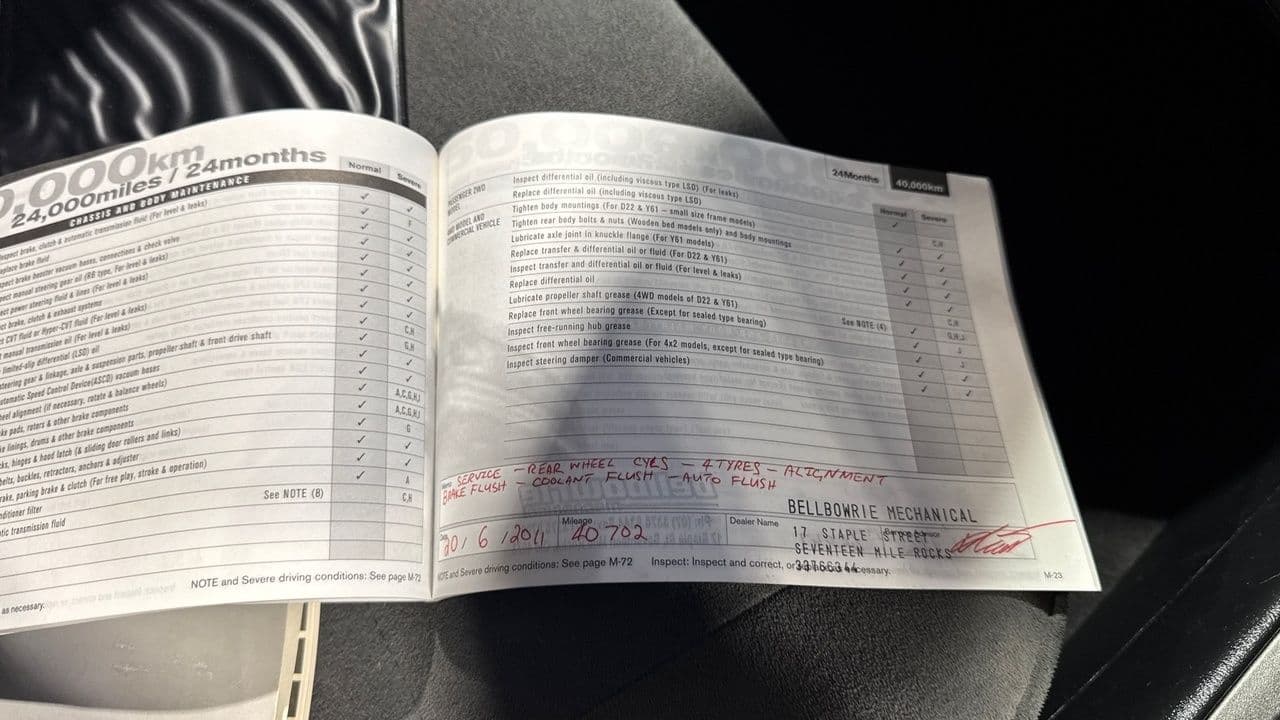 0,000km
24,000miles / 24months
CHASSIS AND BODY MAINTENANCE
Normal Severe
brake, clutch & automatic transmission fluid (For level & leaks)
brake fluid F
brake booster vacuum hoses, connections & check valve
manual steering gear oil (RB type, For level & leaks)
power steering fluid & lines (For level & leaks)
brake, clutch & exhaust systems
CVT fluid or Hyper-CVT fluid (For level & leaks)
manual transmission oil (For level & leaks) C,H
limited-slip differential (LSD) oil G,H
steering gear & linkage, axle & suspension parts, propeller shaft & front drive shaft
Automatic Speed Control Device(ASCD) vacuum hoses
wheel alignment (if necessary, rotate & balance wheels)
pads, rotors & other brake components A,C,G,H,J
linings, drums & other brake components A,C,G,H,J
hinges & hood latch (& sliding door rollers and links) G
belts, buckles, retractors, anchors & adjuster
parking brake & clutch (For free play, stroke & operation)
filter A
transmission fluid See NOTE (8) C,H
NOTE and Severe driving conditions: See page M-72
as necessary.
24Months 40,000km
Normal Severe
PASSENGER 2WD MODEL
MODEL AND COMMERCIAL VEHICLE
Inspect differential oil (including viscous type LSD) (For leaks) ✓
Replace differential oil (including viscous type LSD) C,H
Tighten body mountings (For D22 & Y61 – small size frame models)
Tighten rear body bolts & nuts (Wooden bed models only) and body mountings
Lubricate axle joint in knuckle flange (For Y61 models)
Replace transfer & differential oil or fluid (For D22 & Y61)
Inspect transfer and differential oil or fluid (For level & leaks)
Replace differential oil C,H
Lubricate propeller shaft grease (4WD models of D22 & Y61) G,H,J
Replace front wheel bearing grease (Except for sealed type bearing) See NOTE (4) J
Inspect free-running hub grease J
Inspect front wheel bearing grease (For 4x2 models, except for sealed type bearing)
Inspect steering damper (Commercial vehicles)
Memo SERVICE – REAR WHEEL CYLS – 4 TYRES – ALIGNMENT
BRAKE FLUSH – COOLANT FLUSH – AUTO FLUSH
20/6/2011 Mileage 40 702 Dealer Name
BELLBOWRIE MECHANICAL
17 STAPLE STREET
SEVENTEEN MILE ROCKS
33766344
NOTE and Severe driving conditions: See page M-72 Inspect: Inspect and correct, or
M-23